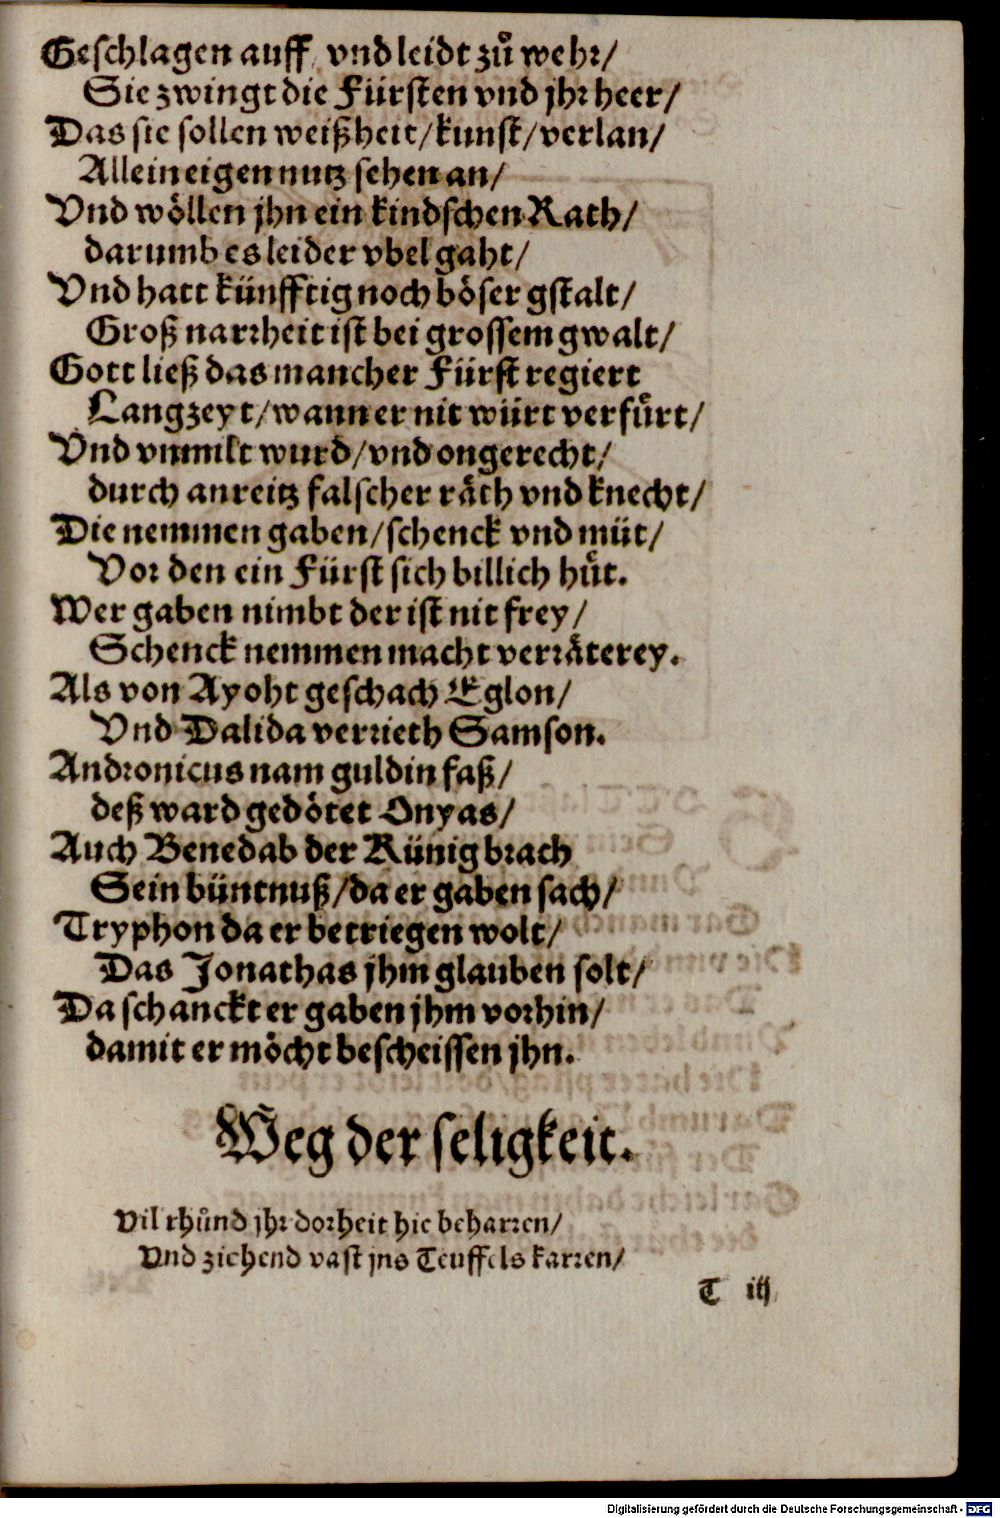 Geschlagen auff / vnd leidt zů wehr/
Sie zwingt die Fürsten vnd jhr heer/
Das sie sollen weißheit/kunst/verlan/
Allein eigen nutz sehen an/
Vnd wöllen jhn ein kindschen Rath/
darumb es leider vbel gaht/
Vnd hatt künfftig noch böser gstalt/
Groß narrheit ist bei grossem gwalt/
Gott ließ das mancher Fürst regiert
Langzeyt/wann er nit würt verfůrt/
Vnd vnmilt wurd/vnd ongerecht/
durch anreitz falscher räth vnd knecht/
Die nemmen gaben/schenck vnd müt/
Vor den ein Fürst sich billich hůt.
Wer gaben nimbt der ist nit frey/
Schenck nemmen macht verräterey.
Als von Ayoht geschach Eglon/
Vnd Dalida verrieth Samson.
Andronicus nam guldin faß/
deß ward gedötet Onyas/
Auch Benedab der Künig brach
Sein büntnuß/da er gaben sach/
Tryphon da er betriegen wolt/
Das Jonathas jhm glauben solt/
Da schanckt er gaben jhm vorhin/
damit er möcht bescheissen jhn.
Weg der seligkeit.
Vil thůnd jhr dorheit hie beharren/
Vnd ziehend vast jns Teuffels karren/
T iij
Digitalisierung gefördert durch die Deutsche Forschungsgemeinschaft - DFG